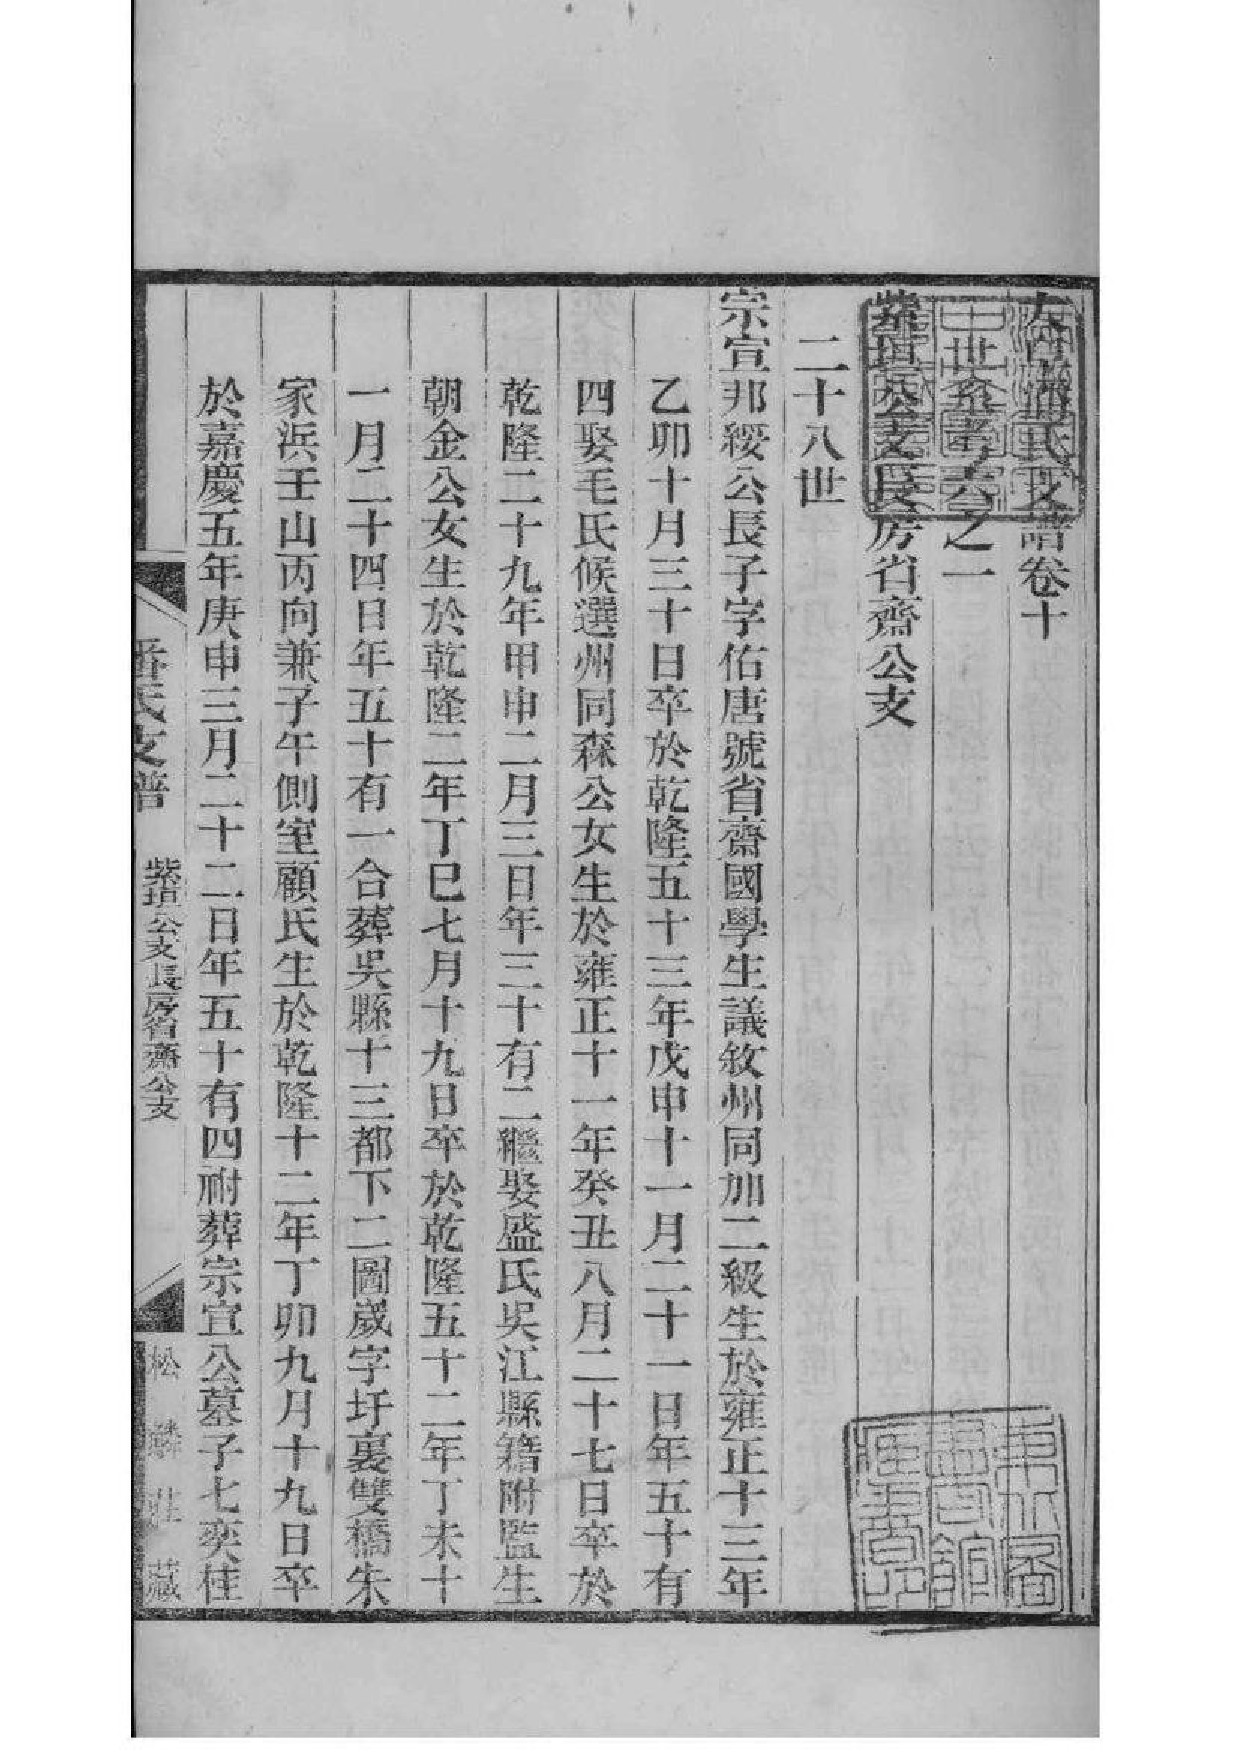 大阜潘氏支譜卷十
世系考六之一
紫垣公支長房省齋公支
二十八世
宗宣邦綏公長子字佑唐號省齋國學生議敘州同加二級生於雍正十三年
乙卯十月三十日卒於乾隆五十三年戊申十一月二十一日年五十有
四娶毛氏候選州同森公女生於雍正十一年癸丑八月二十七日卒於
乾隆二十九年甲申二月三日年三十有二繼娶盛氏吳江縣籍附監生
朝金公女生於乾隆二年丁巳七月十九日卒於乾隆五十二年丁未十
一月二十四日年五十有一合葬吳縣十三都下二圖歲字圩裏雙橋朱
家浜壬山丙向兼子午側室顧氏生於乾隆十二年丁卯九月十九日卒
於嘉慶五年庚申三月二十二日年五十有四祔葬宗宣公墓子七奕桂
潘氏支譜
紫垣公支長房省齋公支
松鱗莊藏